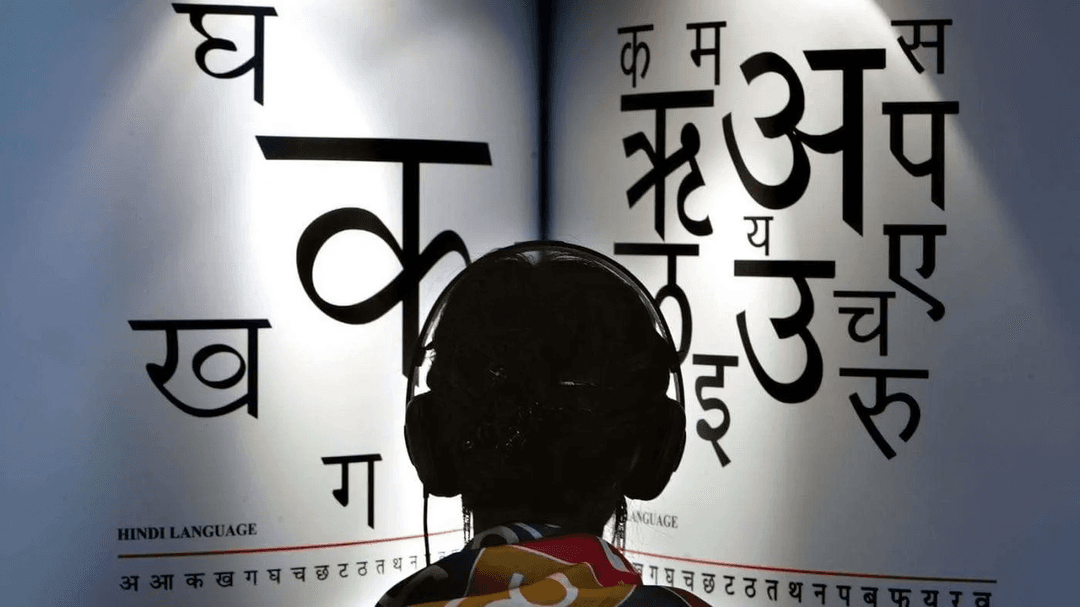 घ
क
ख
ग
HINDI LANGUAGE
अ आ क ख ग घ च छ ट ठ त थ न
क म स
ऋ अ प
य ए
उ च
इ रु
ANGUAGE
ग घ च छ ट ठ त थ न प ब फ य र व